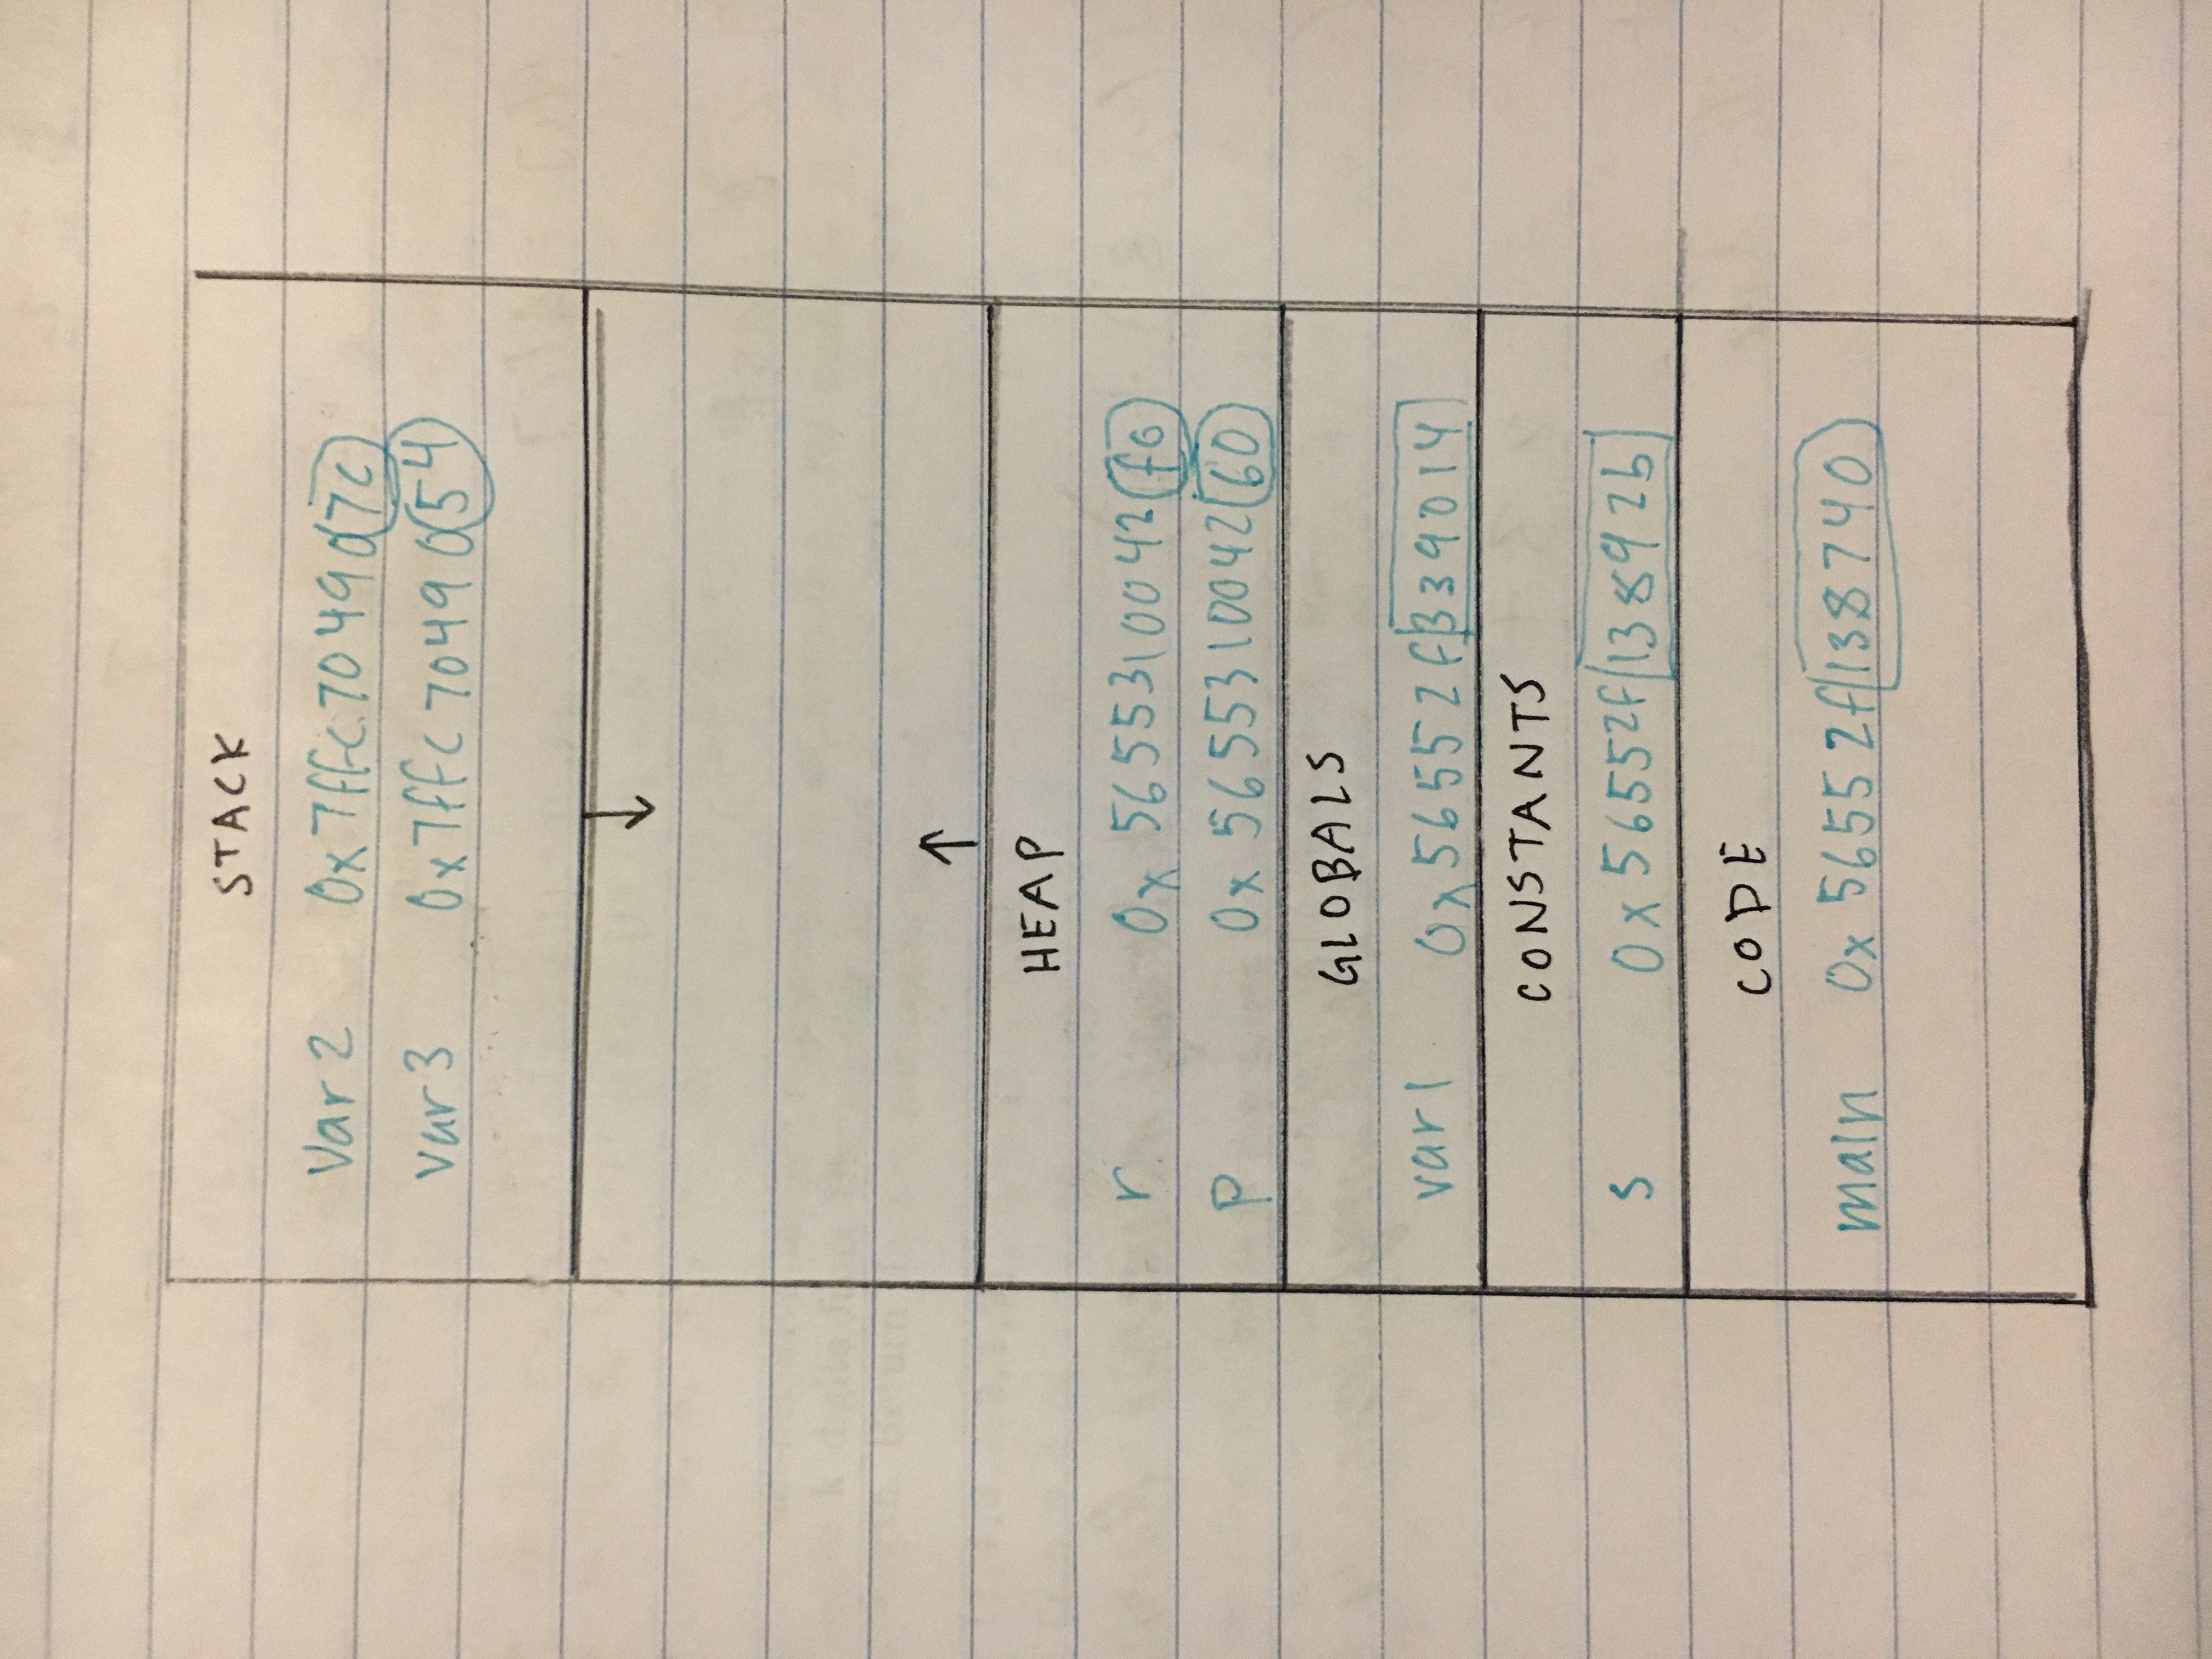 STACK
Var 2 0x7ffc704907c
var 3 0x7ffc7049054
HEAP
r 0x5655310042f0
p 0x565531004260
GLOBALS
var1 0x56552f339014
CONSTANTS
s 0x56552f13892b
CODE
main 0x56552f138740
k digits
Return